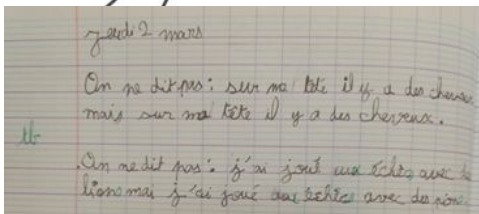 jeudi 2 mars
On ne dit pas : sur ma tête il y a des chevau
mais sur ma tête il y a des cheveux.
tb
.On ne dit pas : j'ai joué aux échecs avec de
lions mai j'ai joué aux echecs avec des pions